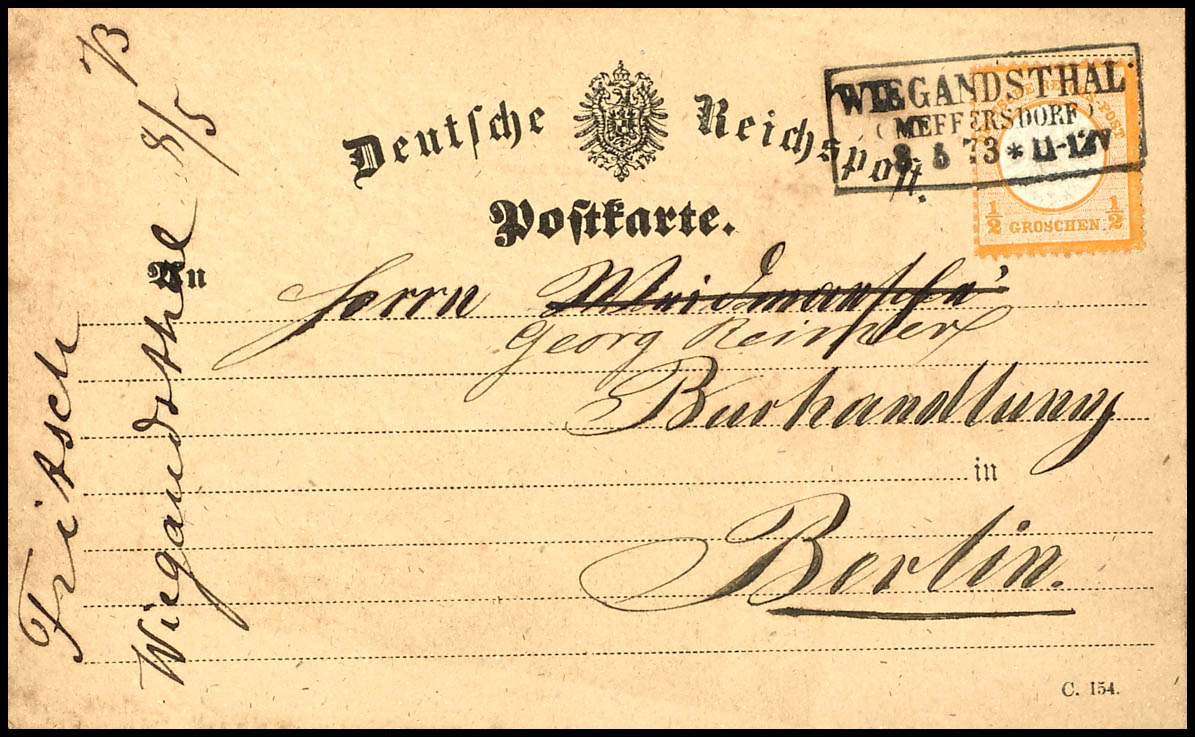 Deutsche Reichspost.
Postkarte.
WIEGANDSTHAL
(MEFFERSDORF)
8 5 73 * 11-12V
REICHS-POST
½ GROSCHEN ½
An
Herrn Weidmansche
Georg Reimer
Buchhandlung
in
Berlin.
C. 154.
Fritsch
Wiegandsthal 8/5